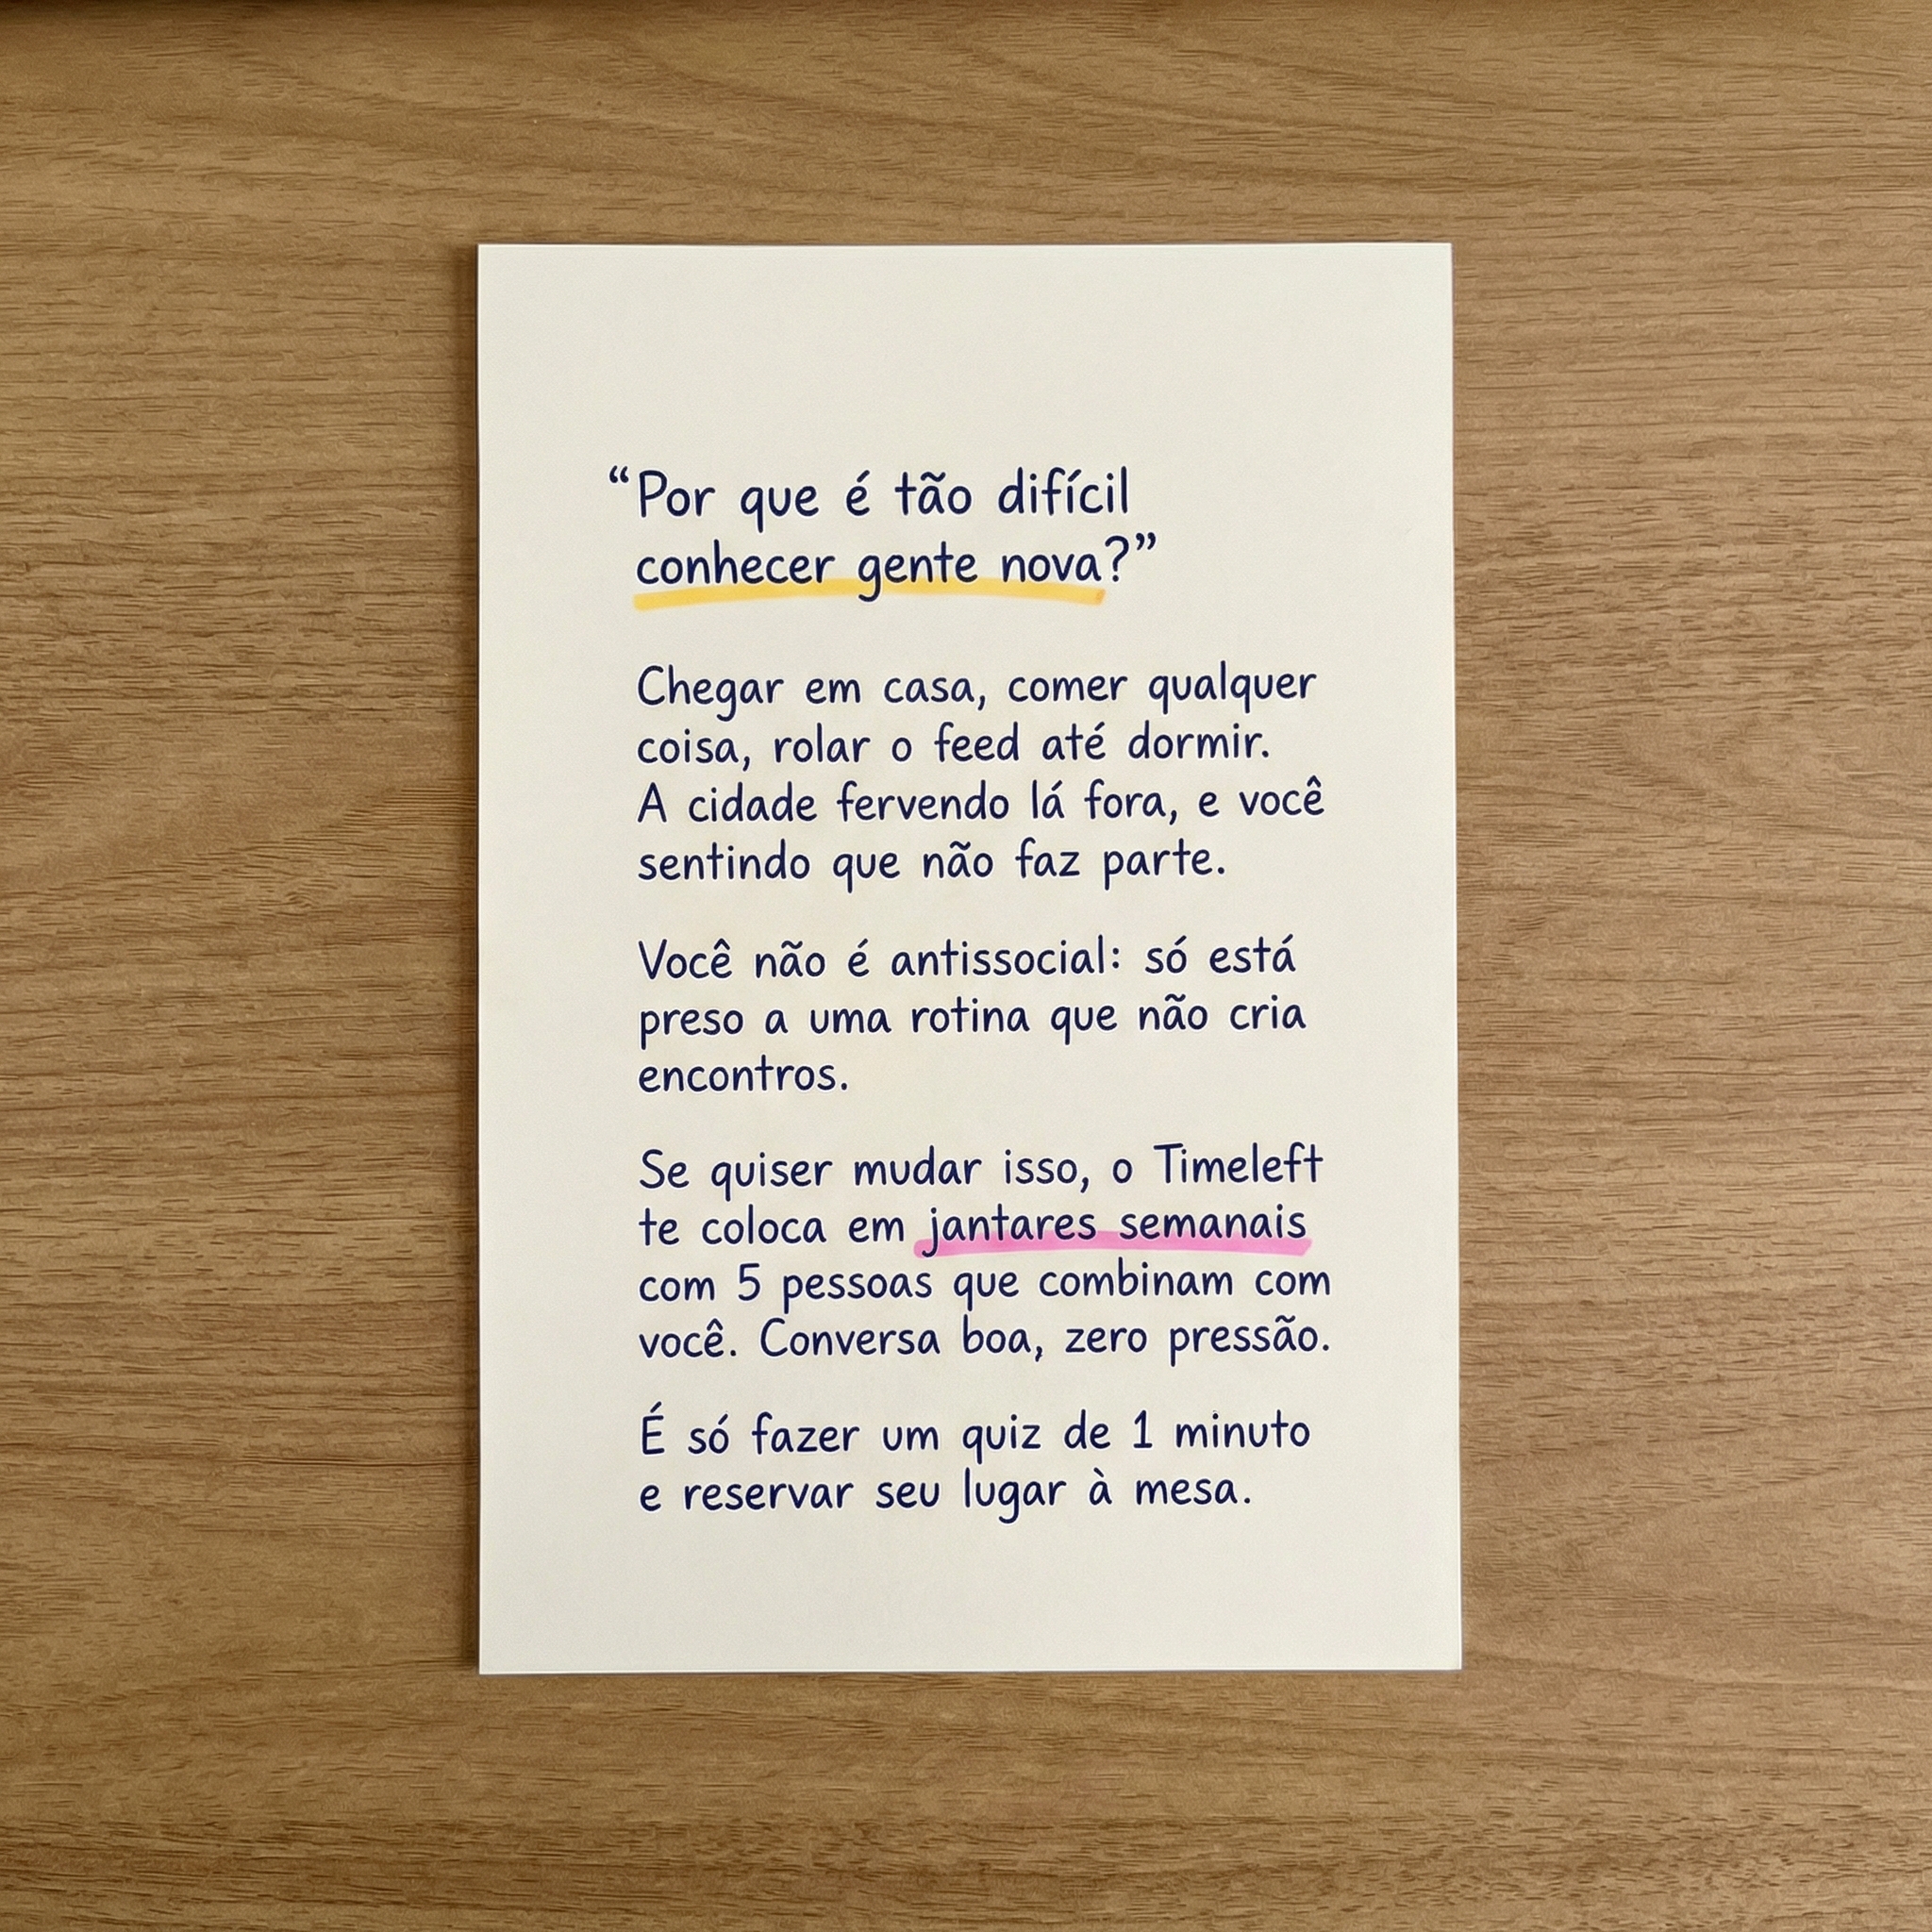 “Por que é tão difícil
conhecer gente nova?”
Chegar em casa, comer qualquer
coisa, rolar o feed até dormir.
A cidade fervendo lá fora, e você
sentindo que não faz parte.
Você não é antissocial: só está
preso a uma rotina que não cria
encontros.
Se quiser mudar isso, o Timeleft
te coloca em jantares semanais
com 5 pessoas que combinam com
você. Conversa boa, zero pressão.
É só fazer um quiz de 1 minuto
e reservar seu lugar à mesa.